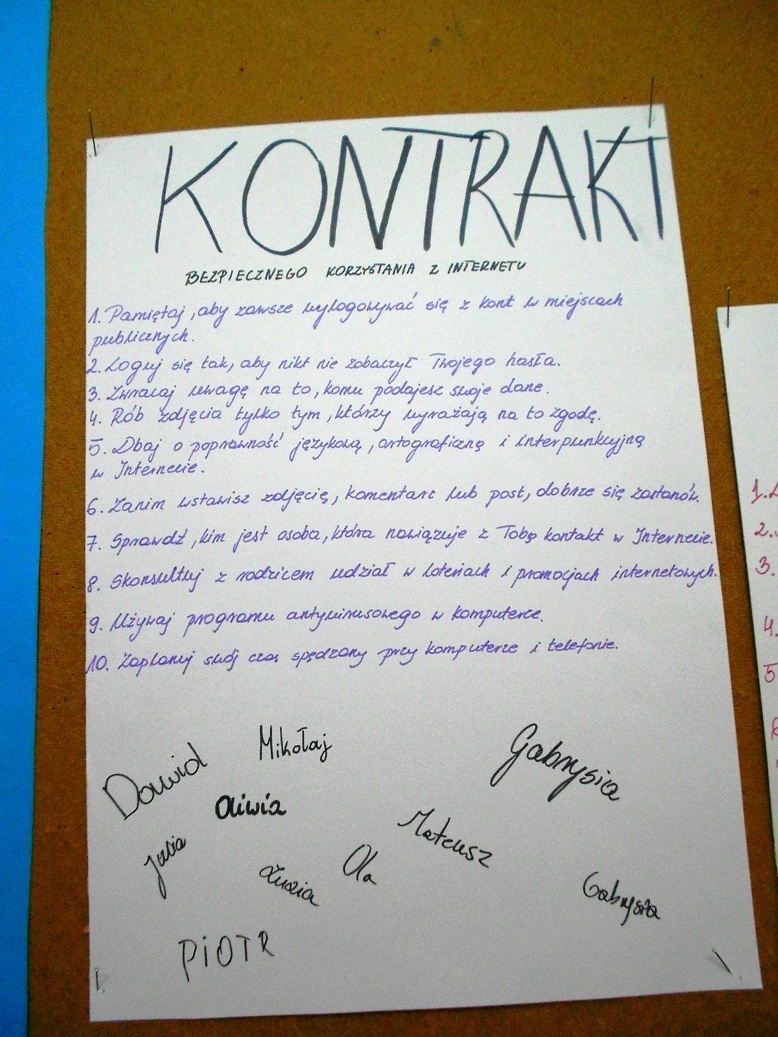 KONTRAKT
BEZPIECZNEGO KORZYSTANIA Z INTERNETU
1. Pamiętaj, aby zawsze wylogowywać się z kont w miejscach
publicznych.
2. Loguj się tak, aby nikt nie zobaczył Twojego hasła.
3. Zwracaj uwagę na to, komu podajesz swoje dane.
4. Rób zdjęcia tylko tym, którzy wyrażają na to zgodę.
5. Dbaj o poprawność językową, ortograficzną i interpunkcyjną
w Internecie.
6. Zanim wstawisz zdjęcie, komentarz lub post, dobrze się zastanów.
7. Sprawdź kim, jest osoba, która nawiązuje z Tobą kontakt w Internecie.
8. Skonsultuj z rodzicem udział w loteriach i promocjach internetowych.
9. Używaj programu antywirusowego w komputerze.
10. Zaplanuj swój czas spędzony przy komputerze i telefonie.
Mikołaj
Gabrysia
Dawid
Oliwia
Mateusz
Julia
Ola
Zuzia
Gabrysia
PIOTR
1.
2.
3.
4.
5